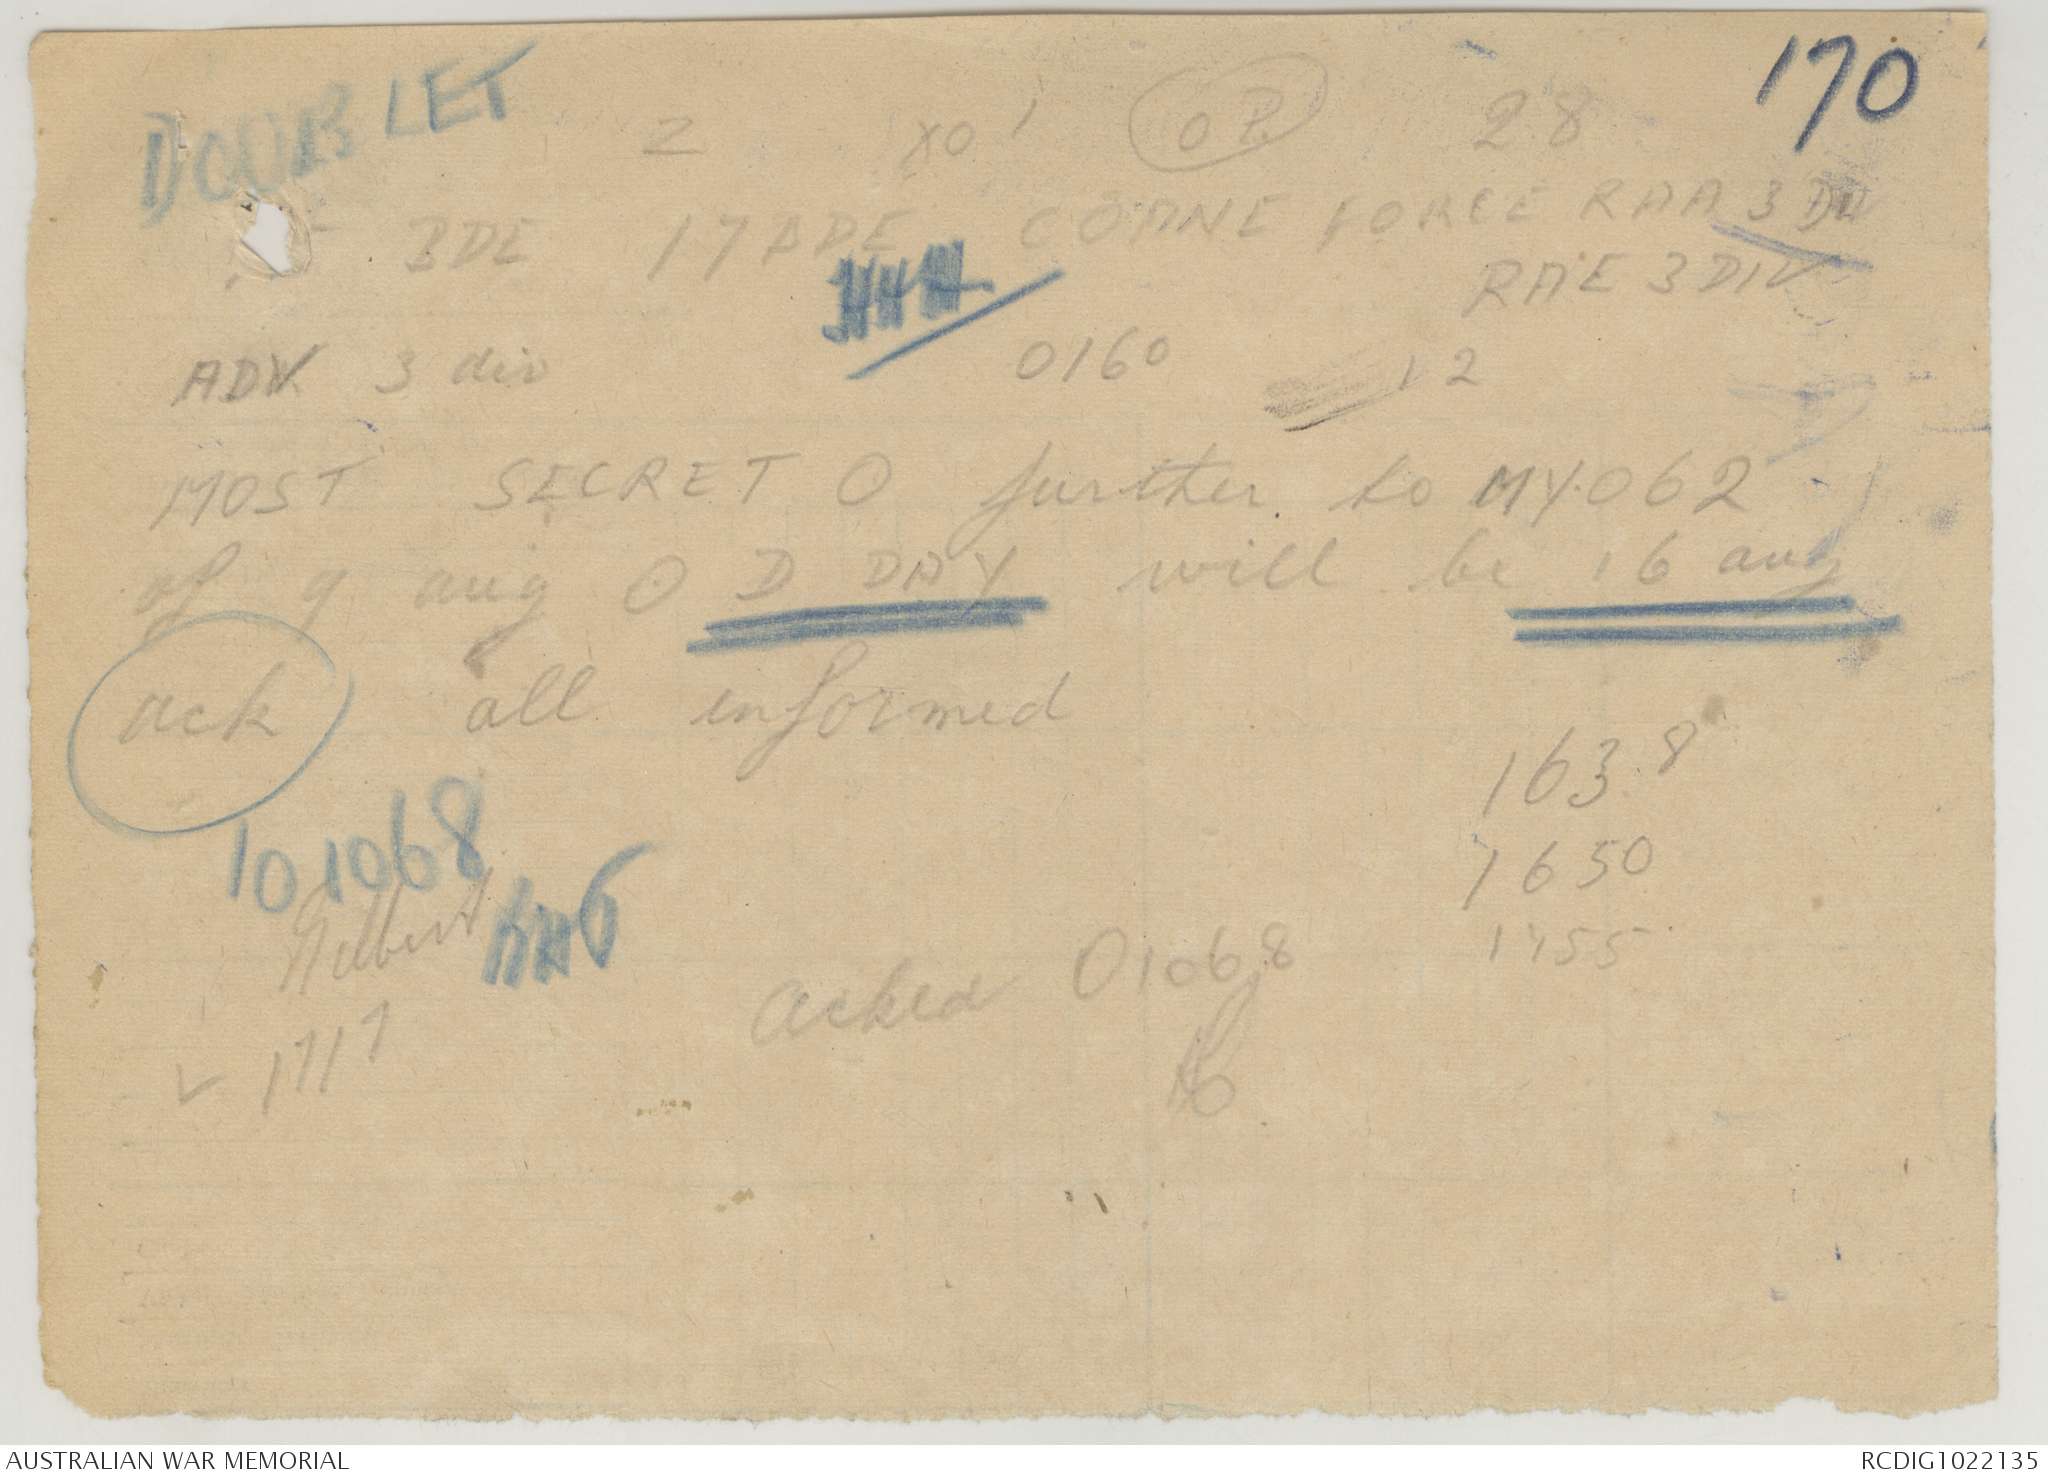 170
DOUBLET
Z XO' OP. 28
BDE 17 BDE COANE FORCE RAA 3 DIV
RAE 3 DIV
ADV 3 div 0160 12
MOST SECRET O further to MY.062
of 9 aug O D DAY will be 16 aug
ack all informed
163 8
101068
1650
Gilbert
1755
acked O1068
✓ 1717
AUSTRALIAN WAR MEMORIAL RCDIG1022135